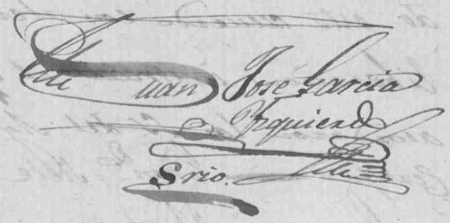 Juan José Garcia
Yzquierdo
Srio.